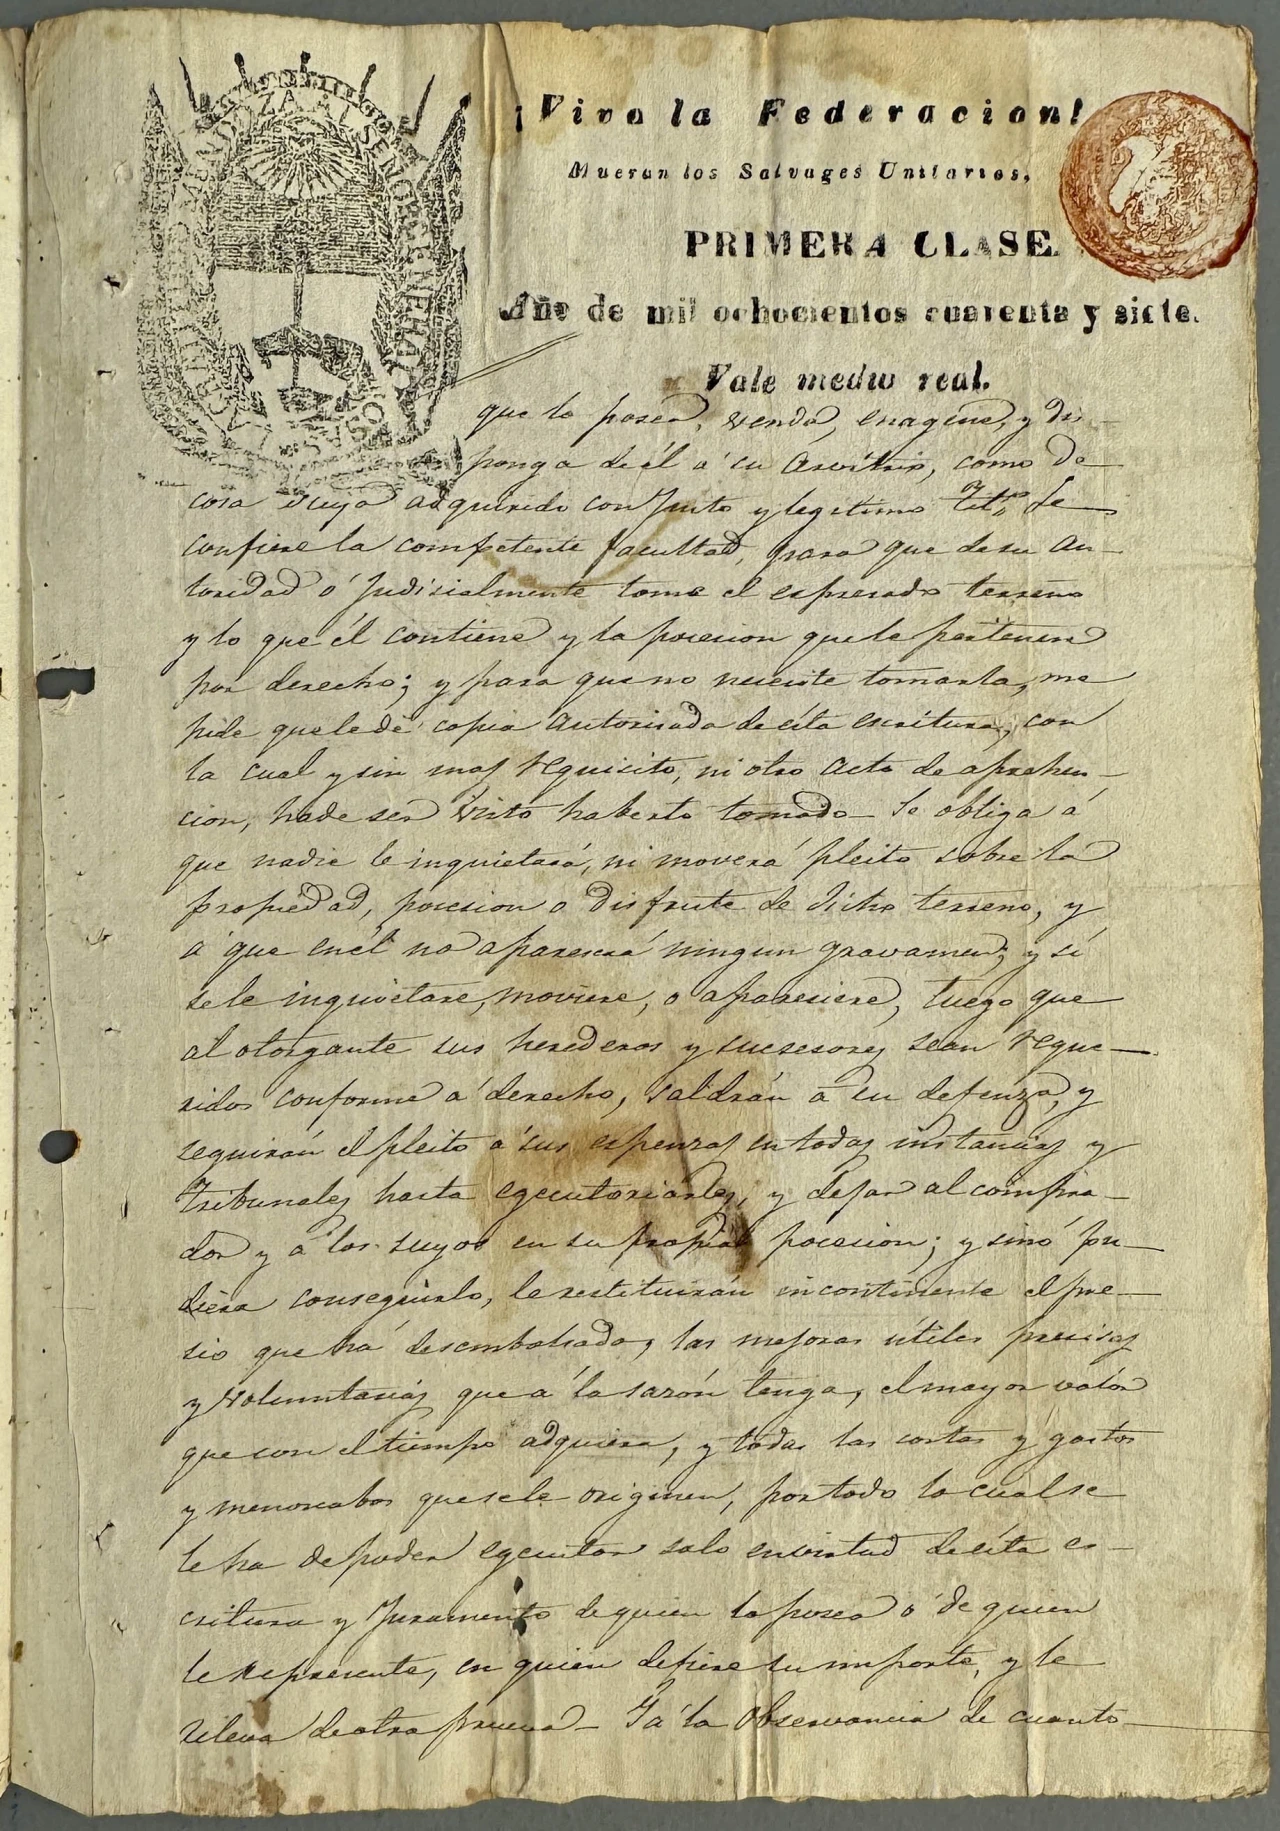 ¡Viva la Federacion!
Mueran los Salvages Unitarios,
PRIMERA CLASE.
Año de mil ochocientos cuarenta y siete.
Vale medio real.
que lo posea, venda, enagene, y dis-
ponga de él a su arvitrio, como de
cosa suya adquirido con justo y legitimo Tit.º Le
confiere la competente facultad, para que de su au-
toridad ó Judisialmente tome el espresado terreno
y lo que él contiene y la posesion que le pertenese
por derecho; y para que no nesesite tomarla, me
pide que le dé copia autorisada de ésta escritura, con
la cual y sin mas requisito, ni otro acto de aprehen-
cion, ha de ser visto haberlo tomado_ Se obliga á
que nadie le inquietará, ni moverá pleito sobre la
propiedad, posesion o disfrute de dicho terreno, y
á que en él no aparescerá ningun gravamen; y si
se le inquietare, moviere, o aparesiere, luego que
al otorgante sus herederos y sucesores sean reque-
ridos conforme a derecho, saldrán a su defenza, y
seguirán el pleito a sus espensas en todas instancias y
Tribunales hasta egecutoriarles, y dejar al compra-
dor y a los suyos en su propia posesion; y sinó pu-
diera conseguirlo, le restituirán incontinente el pre-
sio que há desembolsado, las mejoras útiles presisas
y voluntarias que a la sazón tenga, el mayor valor
que con el tiempo adquiera, y todas las costas y gastos
y menoscabos que se le originen, por todo lo cual se
le ha de poder egecutar solo en virtud de ésta es-
critura y Juramento de quien la posea ó de quien
le represente, en quien defiere su importe, y le
releva de otra prueva_ Y a la observancia de cuanto